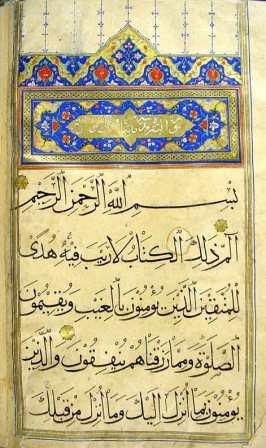 بِسْمِ اللَّهِ الرَّحْمَٰنِ الرَّحِيمِ
الٓمٓ ذَٰلِكَ الْكِتَابُ لَا رَيْبَ فِيهِ هُدًى
لِلْمُتَّقِينَ الَّذِينَ يُؤْمِنُونَ بِالْغَيْبِ وَيُقِيمُونَ
الصَّلَوٰةَ وَمِمَّا رَزَقْنَاهُمْ يُنْفِقُونَ وَالَّذِينَ
يُؤْمِنُونَ بِمَا أُنْزِلَ إِلَيْكَ وَمَا أُنْزِلَ مِنْ قَبْلِكَ